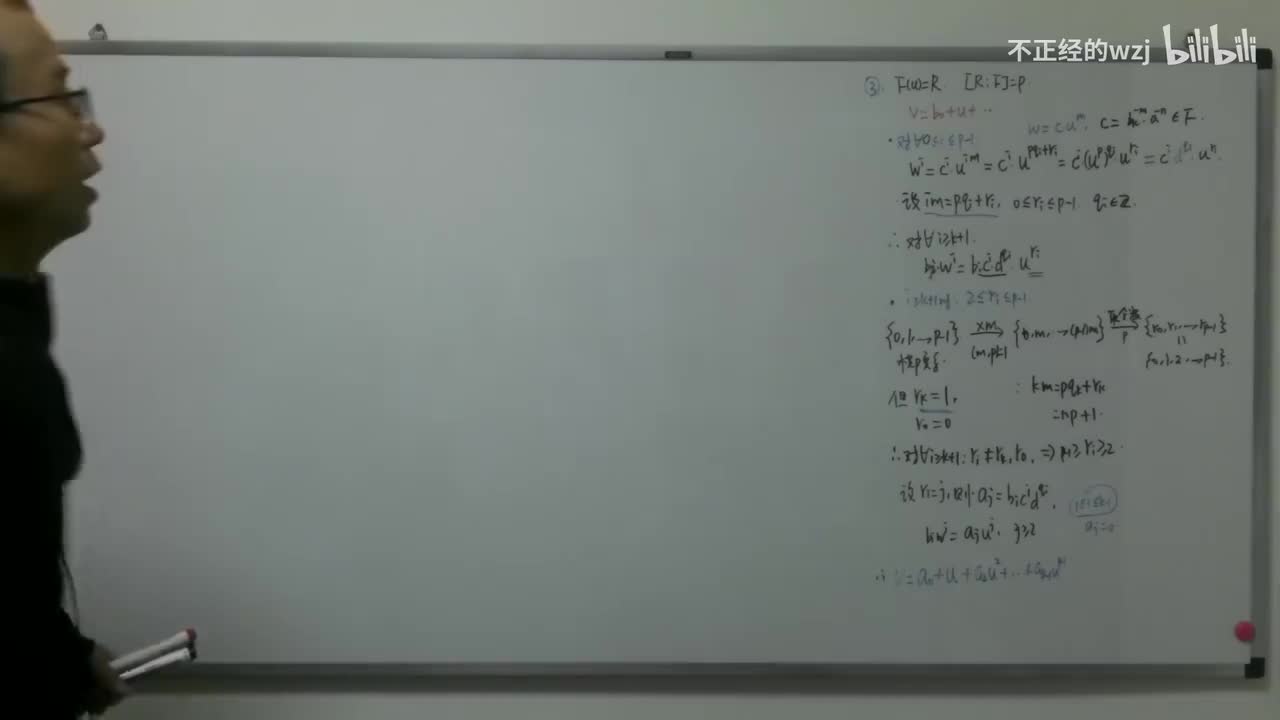 不正经的wzj bilibili
③. F(u)=R. [R:F]=p
v=b₀+u+⋯
w=cuᵐ, c= ∈F.
·对∀0≤i≤p-1
wⁱ=cⁱ·uⁱᵐ=cⁱ·u^{pqᵢ+rᵢ}=cⁱ(uᵖ)^{qᵢ}·u^{rᵢ}=cⁱ·d^{qᵢ}·u^{rᵢ}.
设im=pqᵢ+rᵢ, 0≤rᵢ≤p-1. qᵢ∈ℤ.
∴对∀i≥k+1.
bᵢ·wⁱ=bᵢcⁱd^{qᵢ}·u^{rᵢ}
·i≥k+1时. 2≤rᵢ≤p-1
{0,1,⋯→p-1} ×m→ (m,p)=1 {0,m,⋯→(p-1)m} p→ {r₀,r₁,⋯→r_{p-1}}
{0,1,2,⋯→p-1}.
但rₖ=1, ∵km=pqₖ+rₖ
r₀=0 =np+1.
∴对∀i≥k+1: rᵢ≠rₖ,r₀, ⇒p-1≥rᵢ≥2.
设rᵢ=j,则aⱼ=bᵢcⁱd^{qᵢ},
bᵢwⁱ=aⱼuʲ, j≥2 aⱼ=0
∴v=a₀+u+a₂u²+⋯+a_{p-1}u^{p-1}